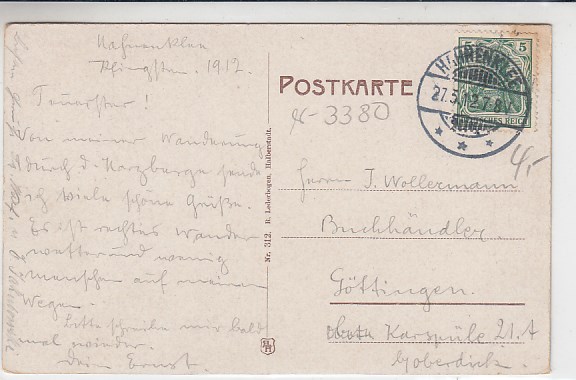 Hahnenklee
Pfingsten. 1912.
Teuerster!
Von meiner Wanderung
durch d. Harzberge sende
ich viele schöne Grüße.
Es ist rechtes Wander
wetter und wenig
Menschen auf meinen
Wegen.
Bitte schreibe mir bald
mal wieder.
Dein Ernst.
Nr. 312. R. Lederbogen, Halberstadt.
POSTKARTE
3380
HAHNENKLEE
27.5.12.7-8
DEUTSCHES REICH
5
4,-
Herrn J. Wollermann
Buchhändler.
Göttingen.
Karspüle 21.A